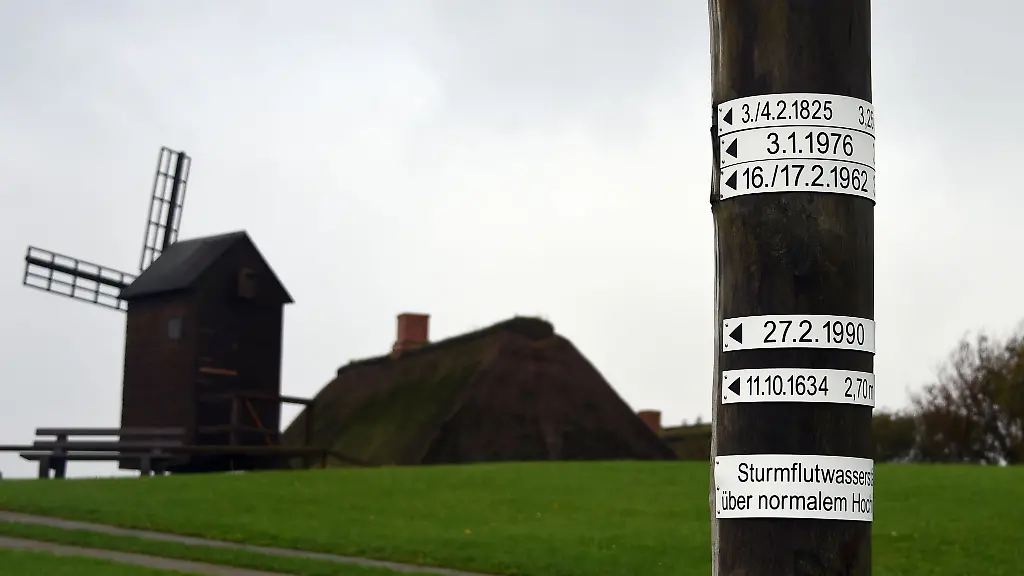 ◀ 3./4.2.1825 3,2
◀ 3.1.1976
◀ 16./17.2.1962
◀ 27.2.1990
◀ 11.10.1634 2,70m
Sturmflutwassers
über normalem Hoch